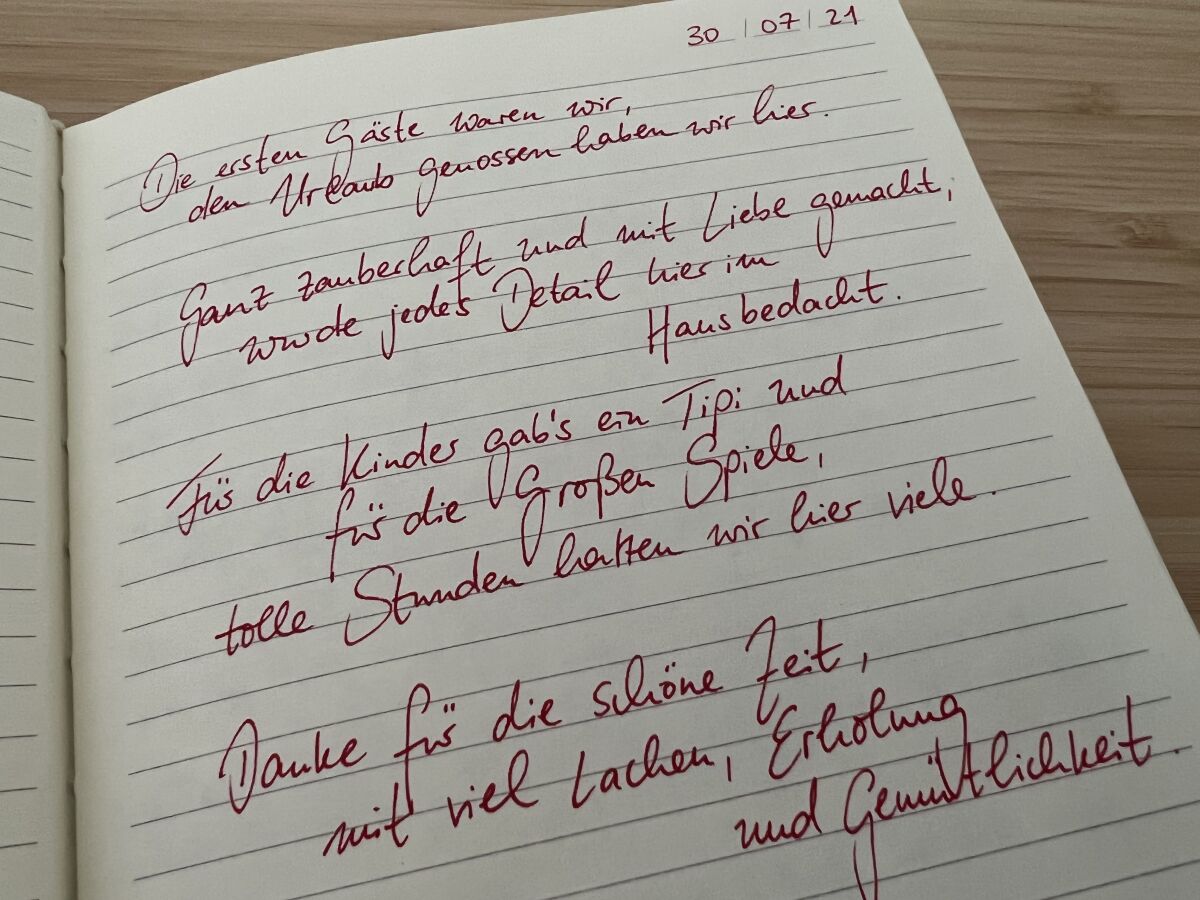 30 | 07 | 21
Die ersten Gäste waren wir,
den Urlaub genossen haben wir hier.
Ganz zauberhaft und mit Liebe gemacht,
wurde jedes Detail hier im
Haus bedacht.
Für die Kinder gab's ein Tipi und
für die Großen Spiele,
tolle Stunden hatten wir hier viele.
Danke für die schöne Zeit,
mit viel Lachen, Erholung
und Gemütlichkeit.